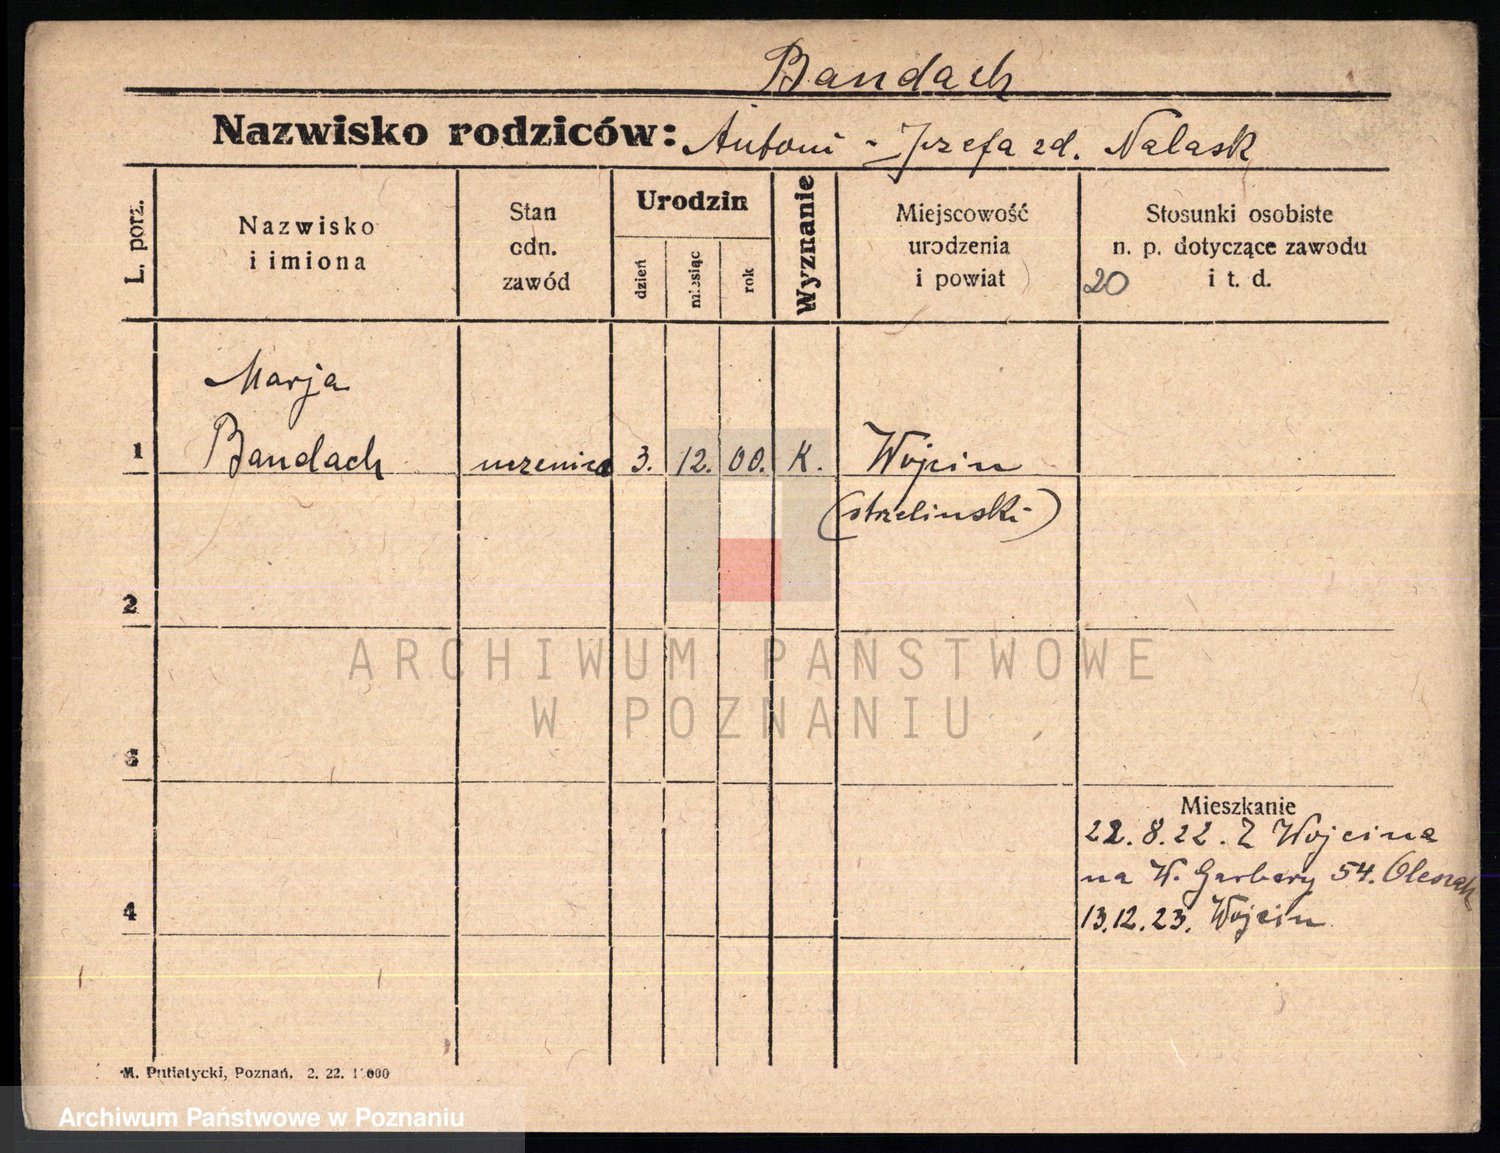 Bandach
Nazwisko rodziców: Antoni - Józefa zd. Nalask
L. porz.
Nazwisko
i imiona
Stan
cdn.
zawód
Urodzin
dzień
miesiąc
rok
Wyznanie
Miejscowość
urodzenia
i powiat
Stosunki osobiste
n. p. dotyczące zawodu
20 i t. d.
Marja
1 Bandach uczenica 3. 12. 00. K. Wójcin
(strzelinski)
2
ARCHIWUM PAŃSTWOWE
W POZNANIU
3
Mieszkanie
22. 8. 22. Z Wojcina
na W. Garbary 54.
4
13.12.23. Wojcin
M. Putiatycki, Poznań. 2. 22.
Archiwum Państwowe w Poznaniu